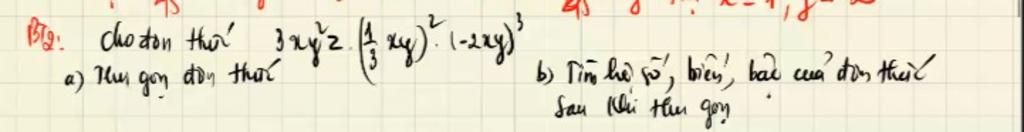 BT2: Cho đơn thức 3xy²z . (1/3 xy)² . (-2xy)³
a) Thu gọn đơn thức
b) Tìm hệ số, biến, bậc của đơn thức
sau khi thu gọn